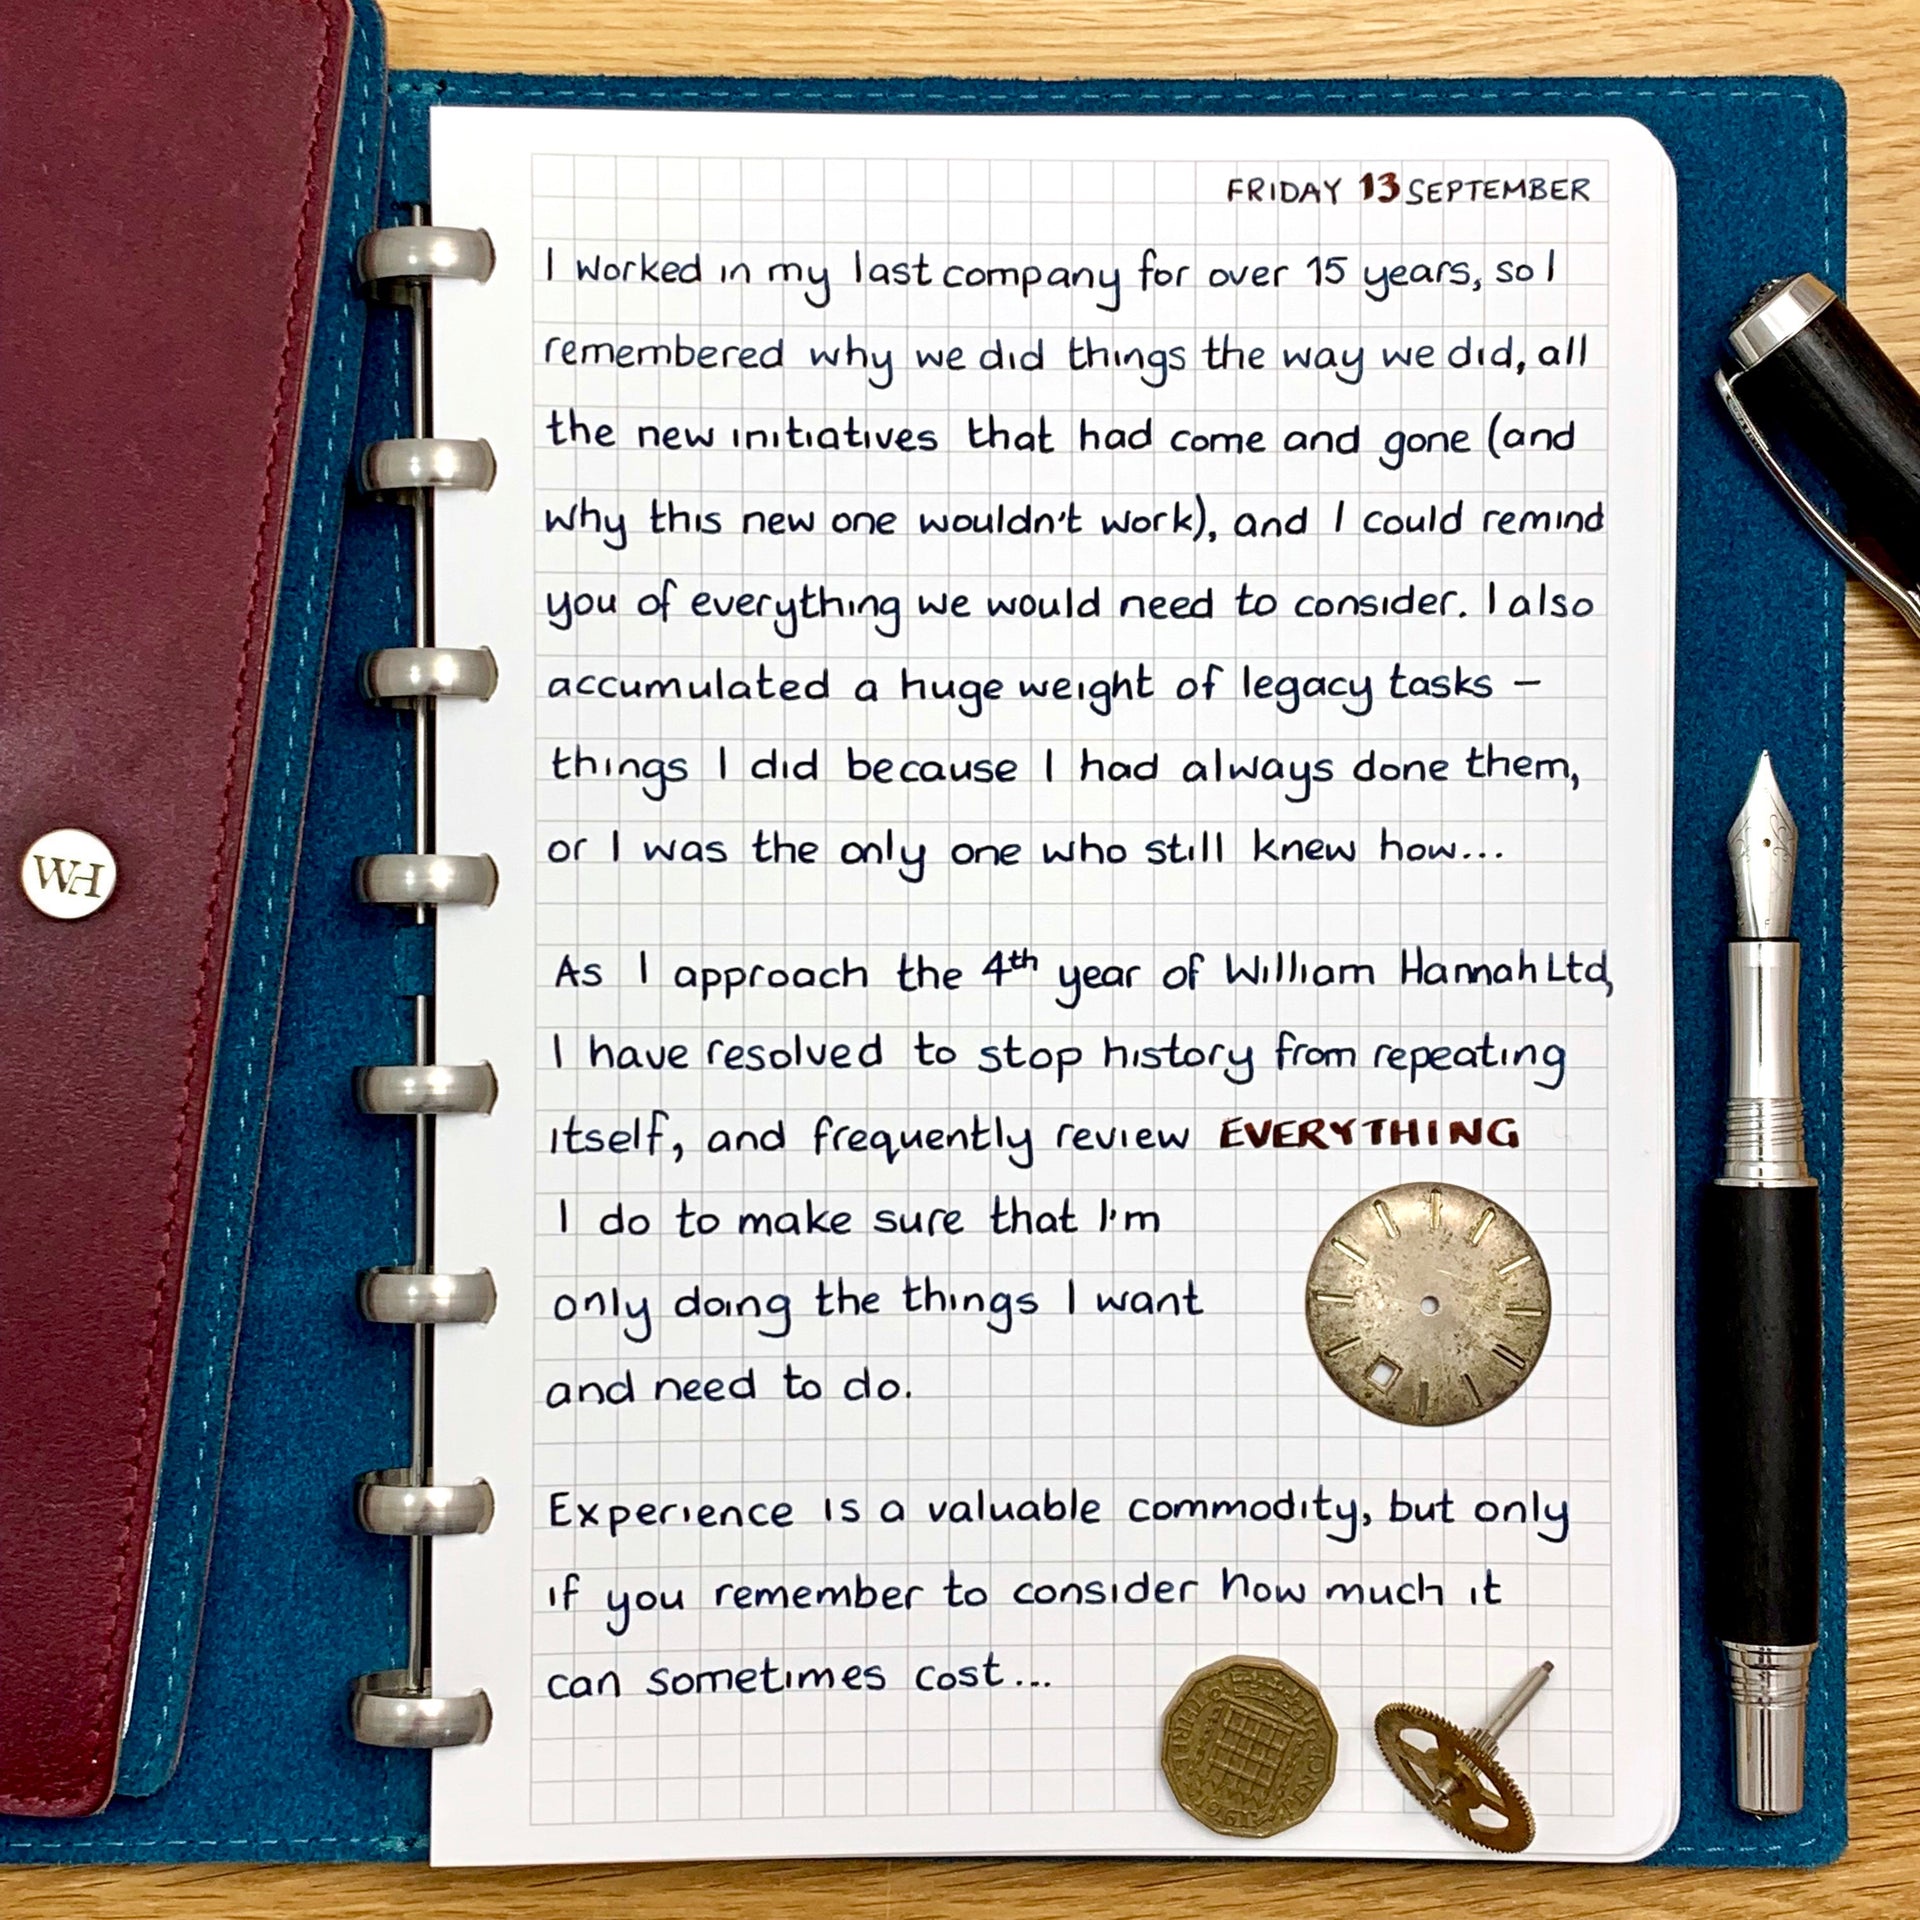 FRIDAY 13 SEPTEMBER
I worked in my last company for over 15 years, so I
remembered why we did things the way we did, all
the new initiatives that had come and gone (and
why this new one wouldn't work), and I could remind
you of everything we would need to consider. I also
accumulated a huge weight of legacy tasks –
things I did because I had always done them,
or I was the only one who still knew how...
As I approach the 4th year of William Hannah Ltd,
I have resolved to stop history from repeating
itself, and frequently review EVERYTHING
I do to make sure that I'm
only doing the things I want
and need to do.
Experience is a valuable commodity, but only
if you remember to consider how much it
can sometimes cost...
WH
THREE PENCE
1961